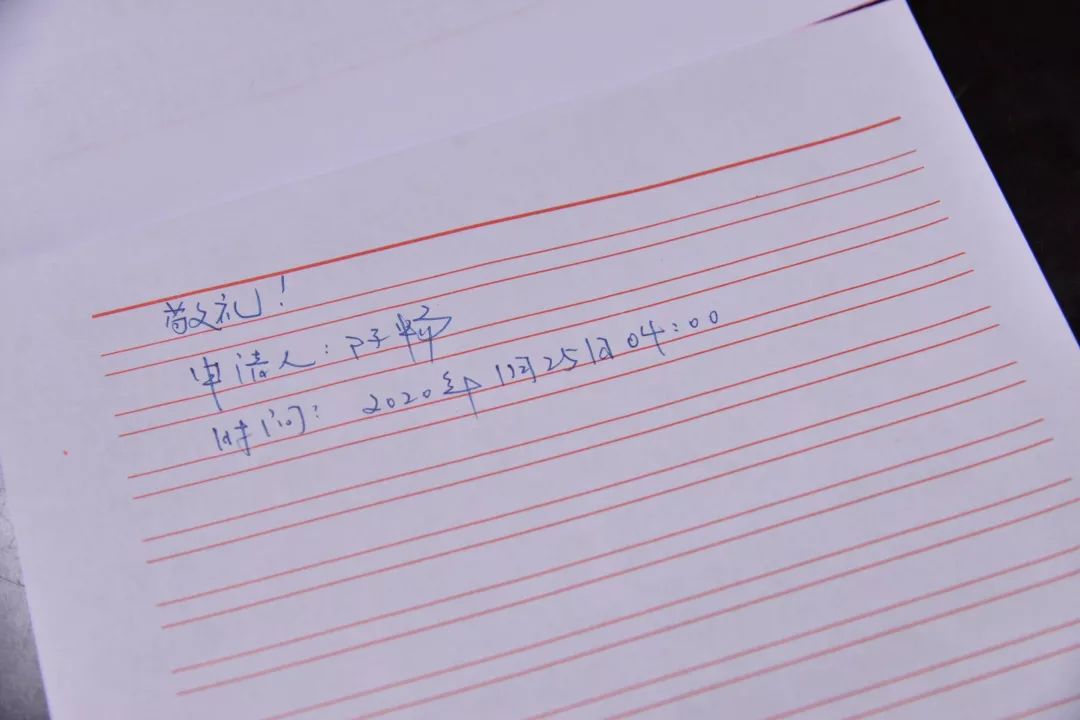 敬礼!
申请人:
时间: 2020年1月25日04:00